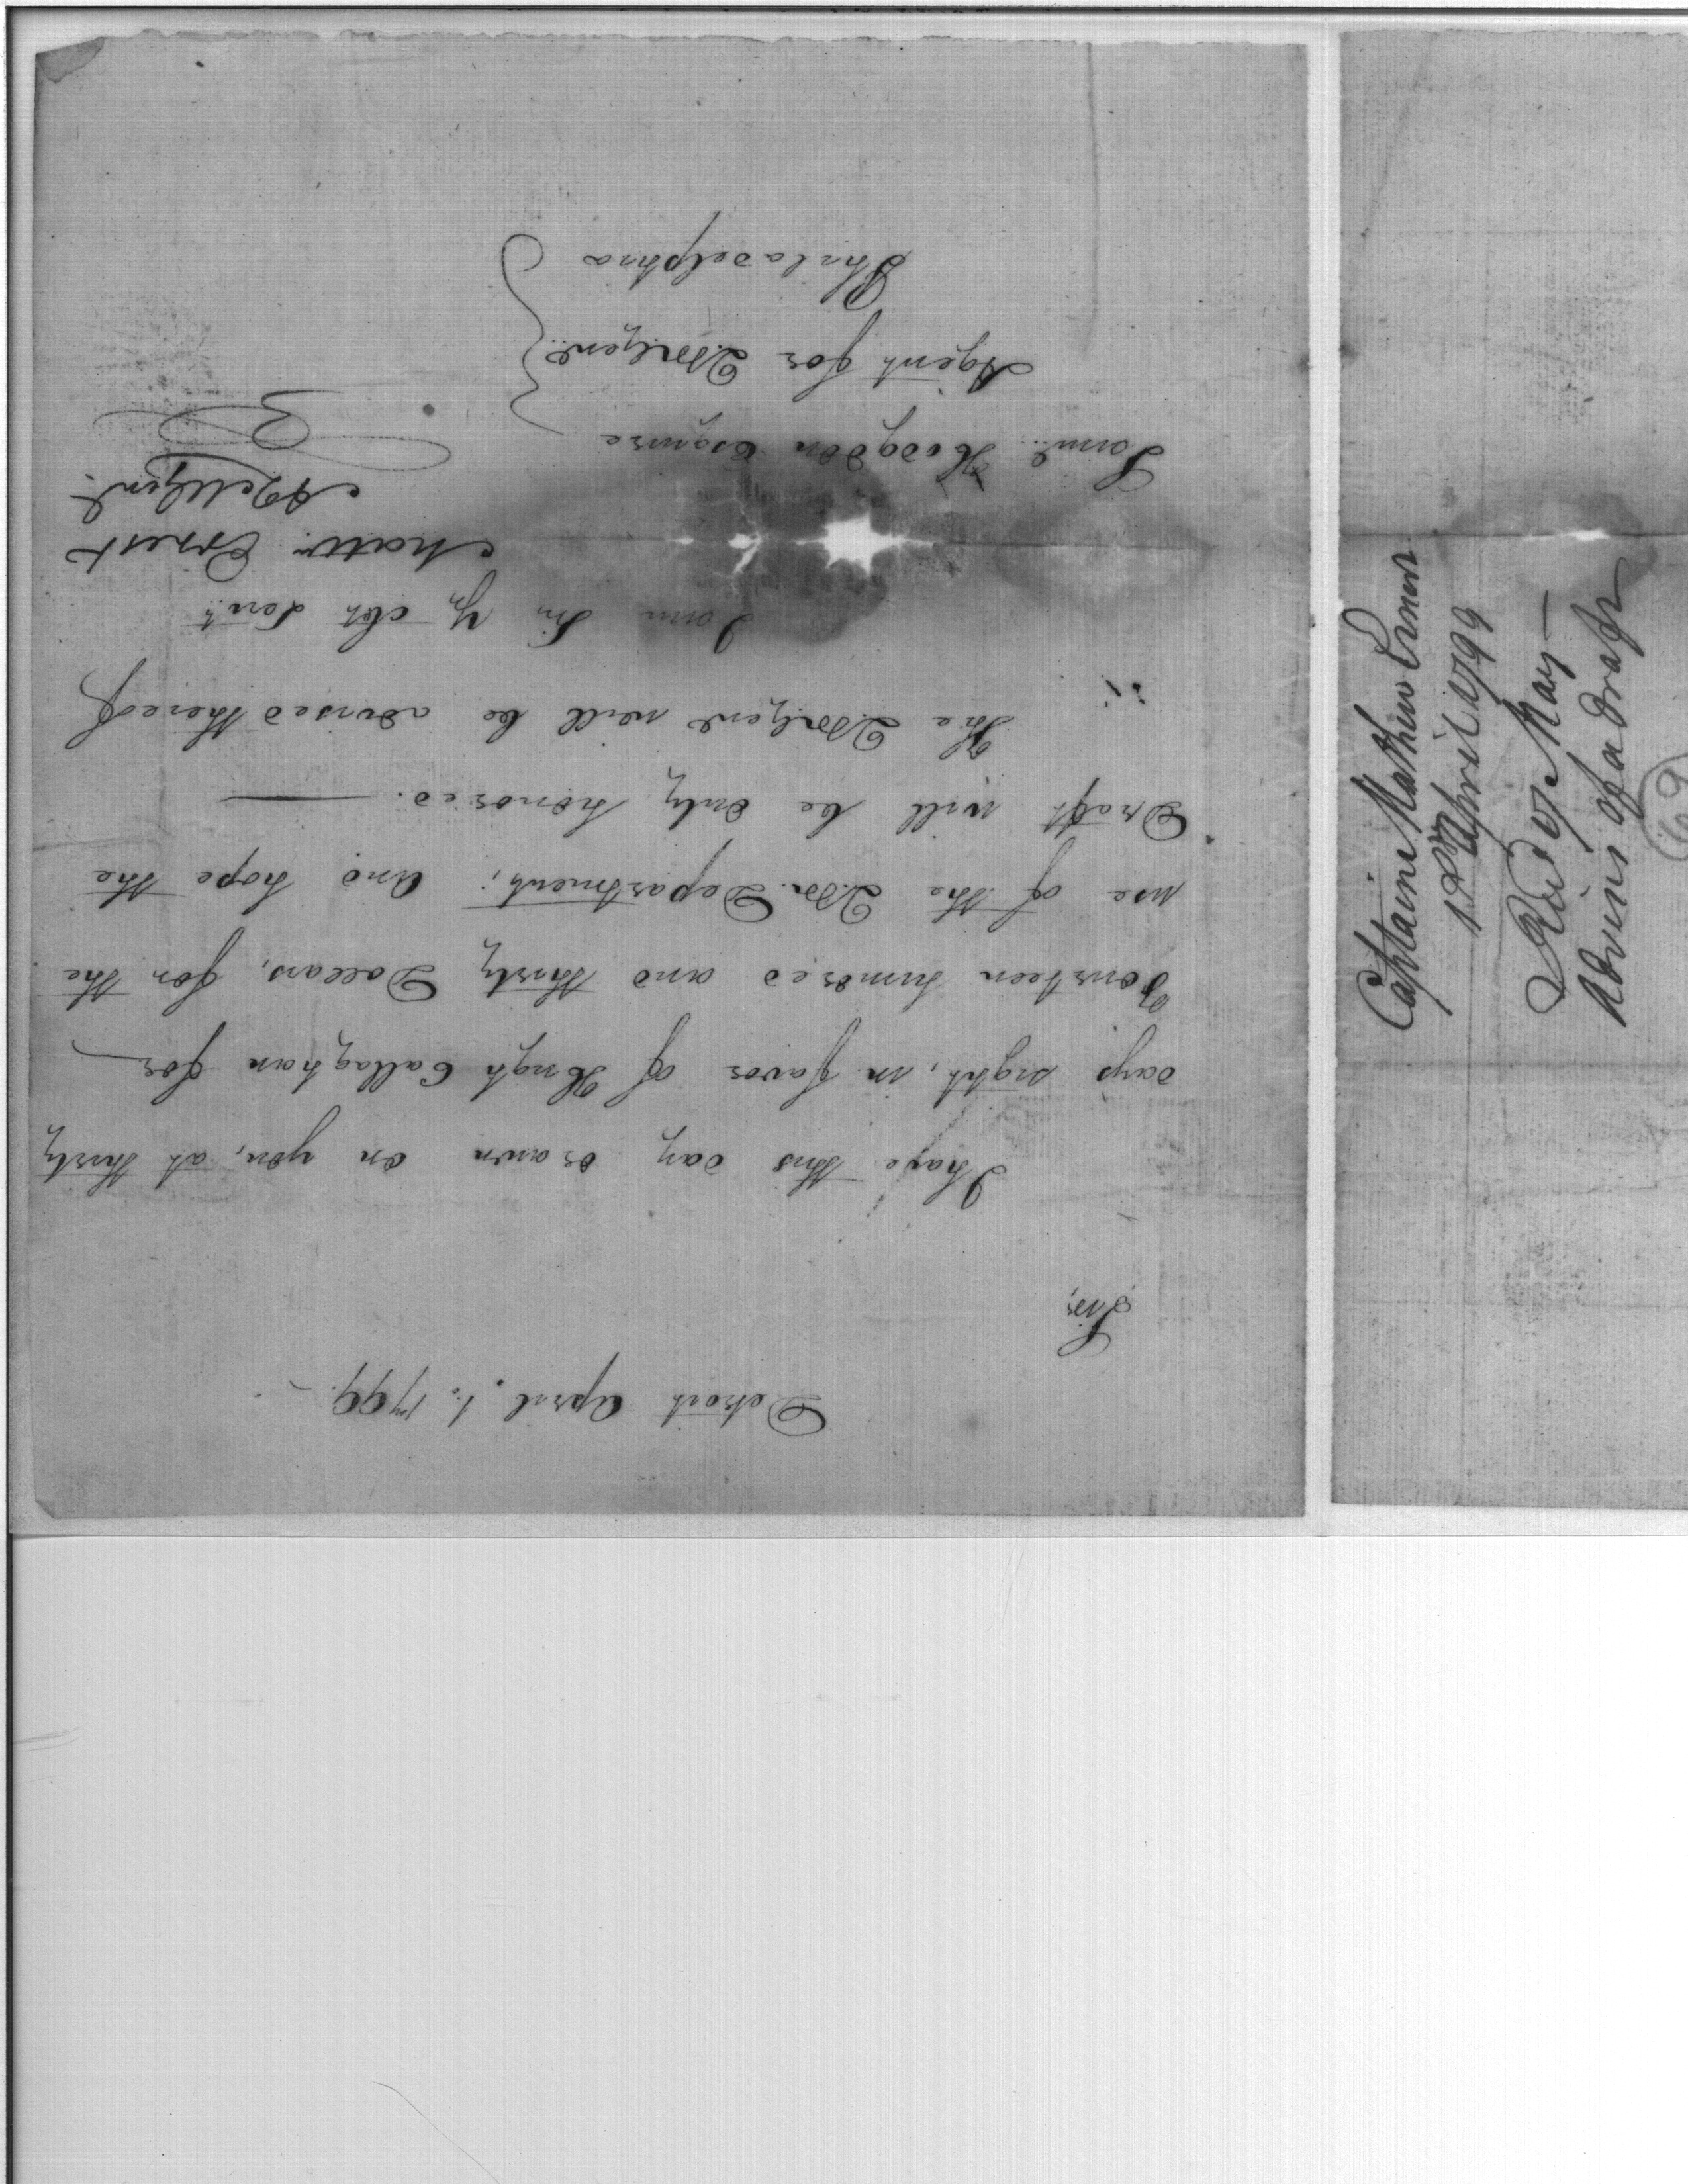 Detroit April 1: 1799.
Sir,
I have this day drawn on you, at thirty
days sight, in favor of Hugh Callaghan for
Fourteen hundred and thirty Dollars, for the
use of the QM. Department; and hope the
Draft will be duly honored.
The QMr Genl will be advised thereof
I am Sir, Yr Obt Servt
Mattw Ernest
AQMGenl.
Saml Hodgdon Esquire
Agent for QMr Genl
Philadelphia
Captaine Mathew Ernest
1st April 1799
Recd 7 May
Advises of a draft
69